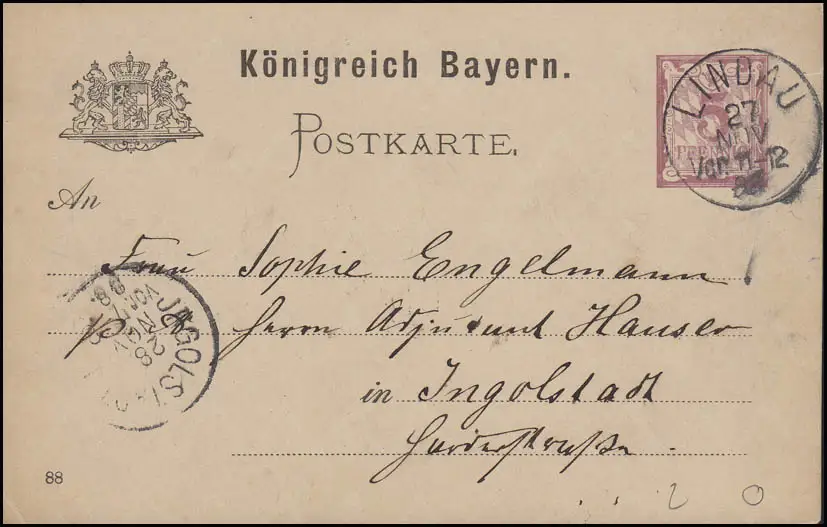 Königreich Bayern.
POSTKARTE.
5
PFENNIG
LINDAU
27
NOV
Vor. 11-12
An
Frau Sophie Engelmann
Herrn Adjutant Hauser
in Ingolstadt
28
NOV
88
2 0